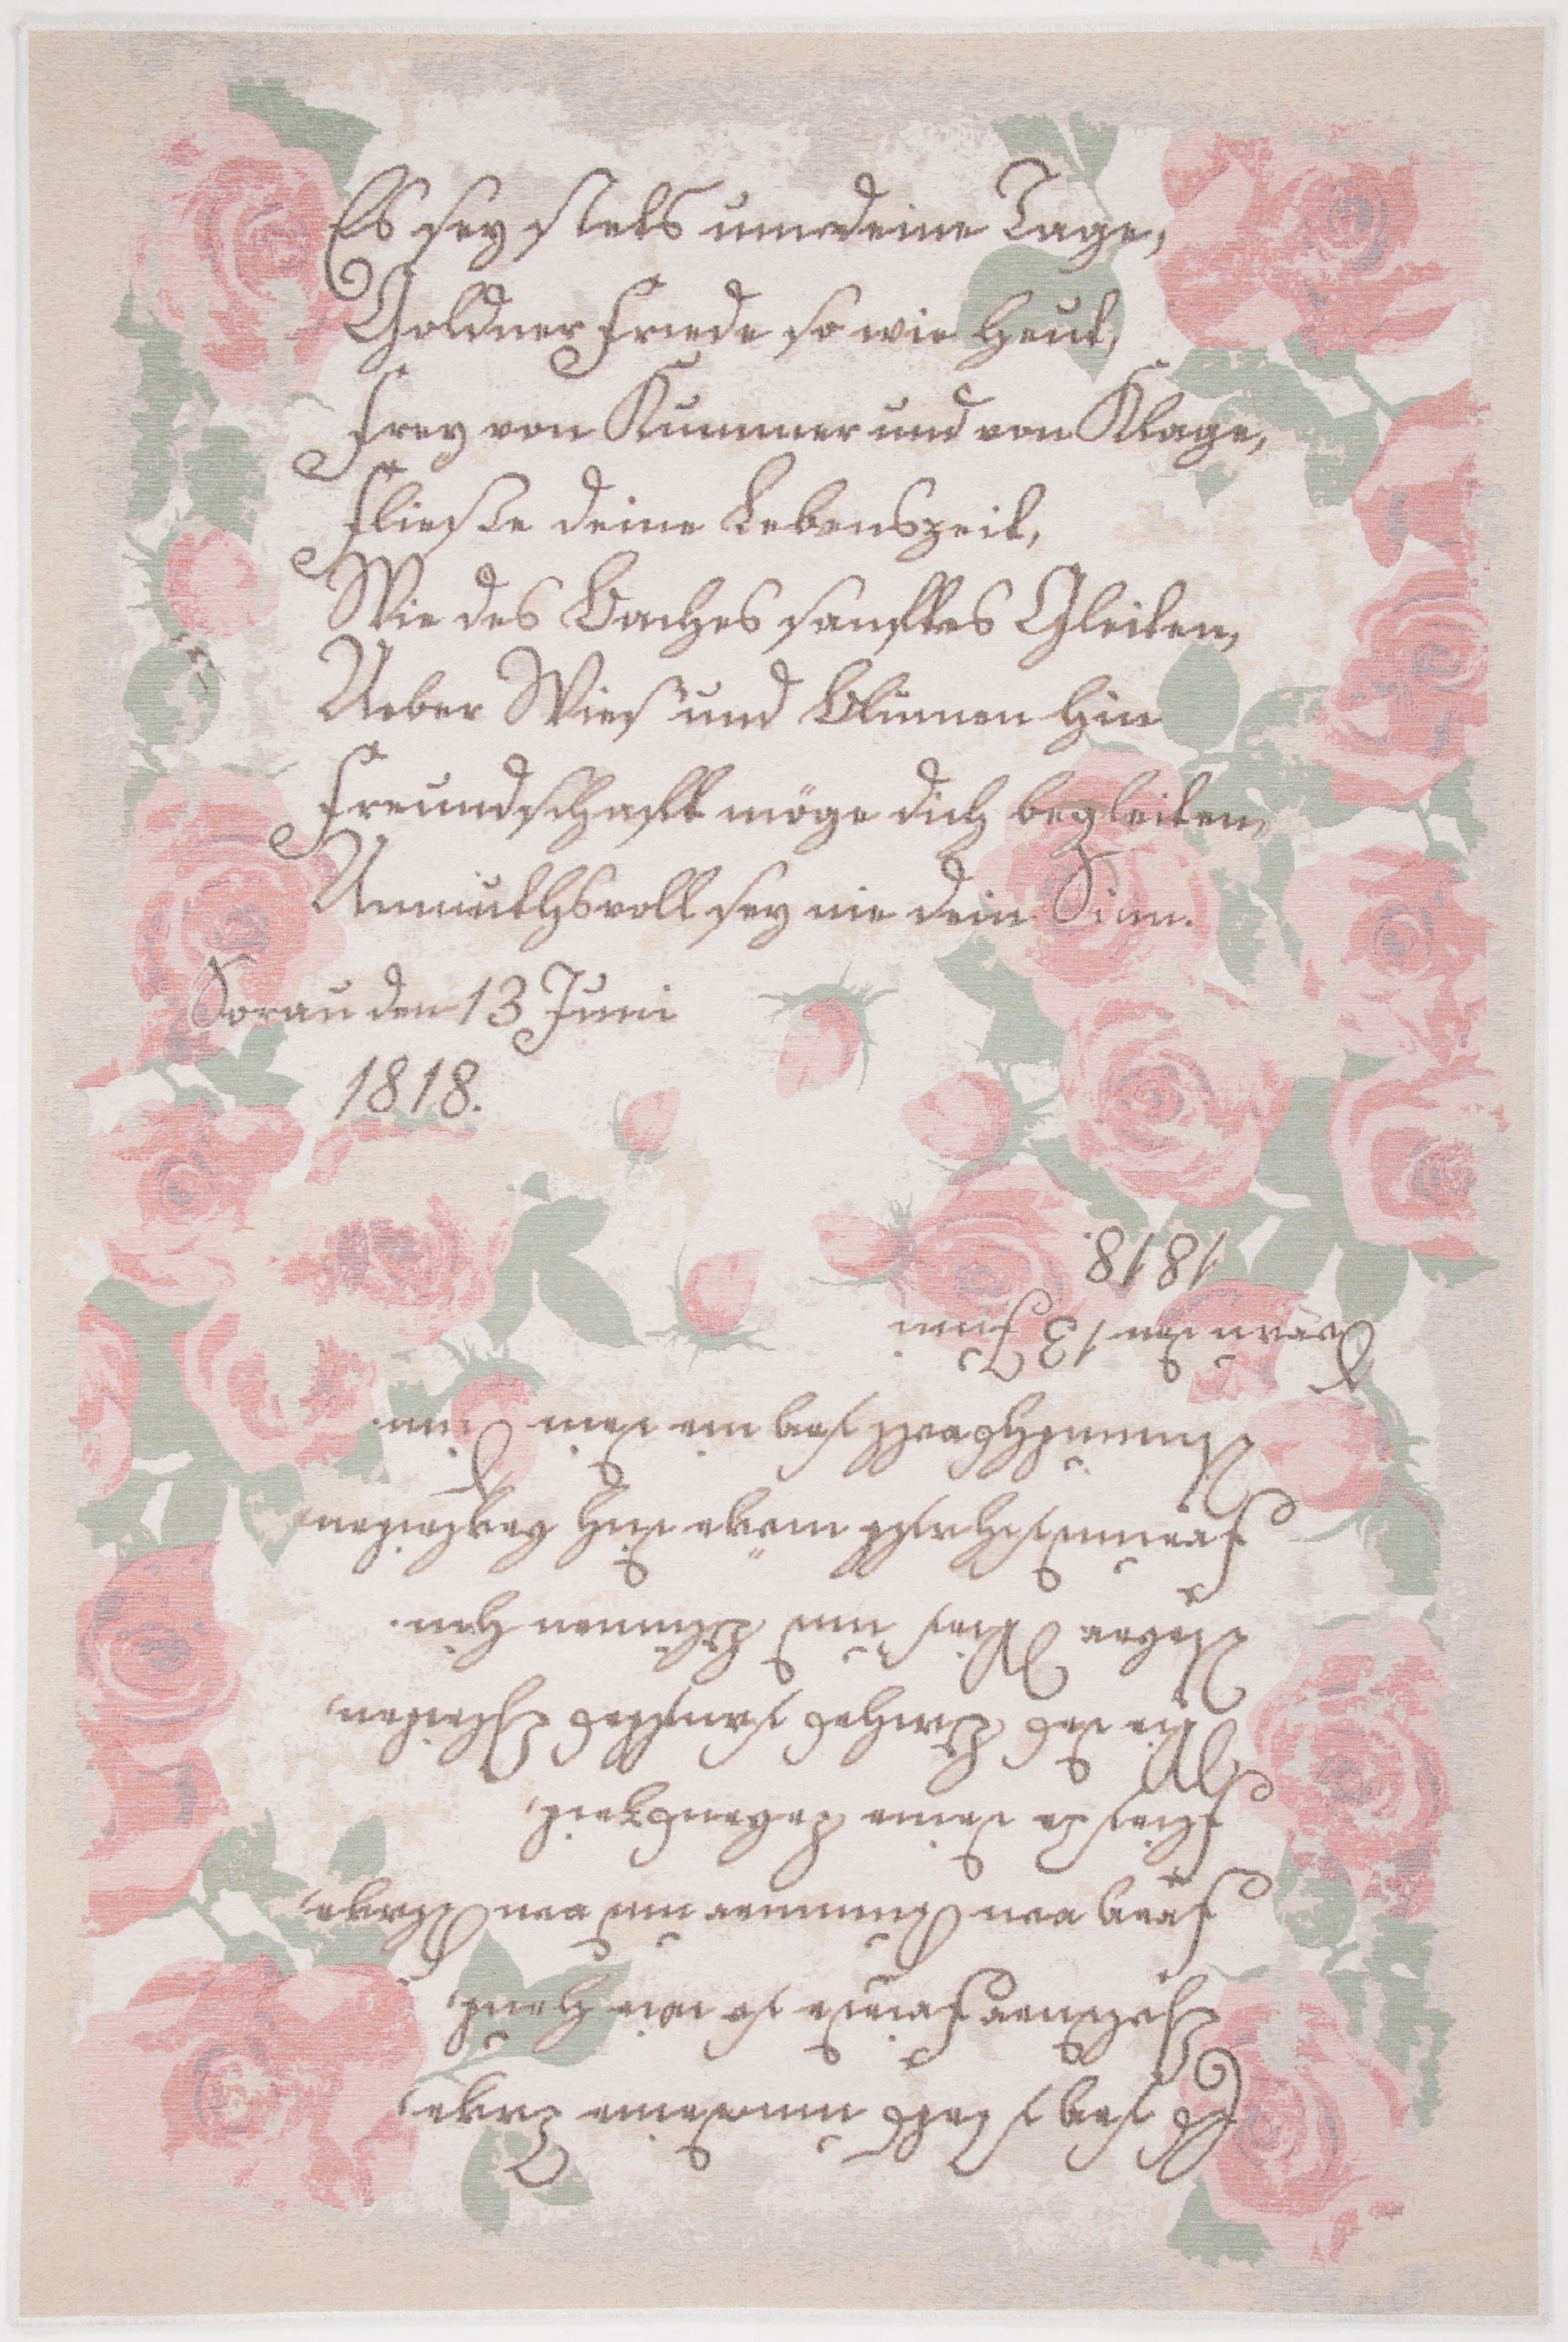 Es sey stets um deine Tage,
Goldner Friede so wie heut,
Frey von Kummer und von Klage,
Fließe deine Lebenszeit,
Wie des Baches sanftes Gleiten,
Ueber Wies' und Blumen hin
Freundschafft möge dich begleiten,
Unmuthsvoll sey nie dein Sinn.
Sorau den 13 Juni
1818.
1818.
Sorau den 13 Juni
Unmuthsvoll sey nie dein Sinn.
Freundschafft möge dich begleiten,
Ueber Wies' und Blumen hin.
Wie des Baches sanftes Gleiten,
Fließe deine Lebenszeit,
Frey von Kummer und von Klage,
Goldner Friede so wie heut,
Es sey stets um deine Tage,